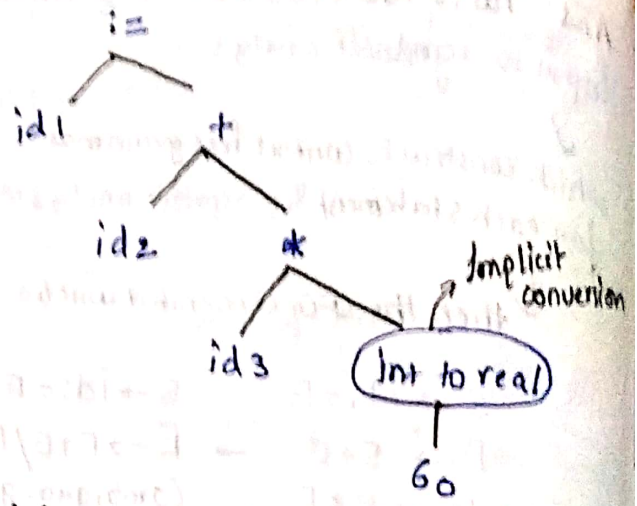 :=
id1
+
id2
*
Implicit
conversion
id3
Int to real
60